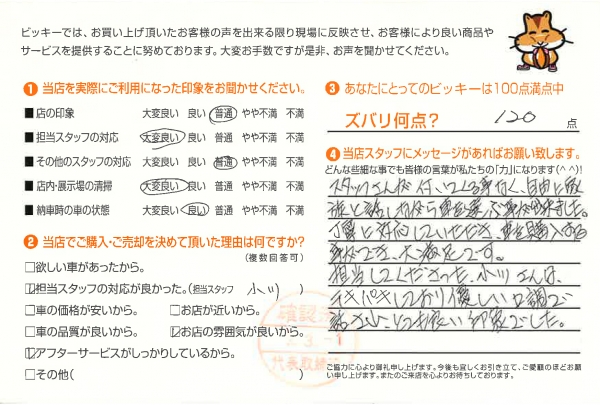 ビッキーでは、お買い上げ頂いたお客様の声を出来る限り現場に反映させ、お客様により良い商品や
サービスを提供することに努めております。大変お手数ですが是非、お声を聞かせてください。
❶ 当店を実際にご利用になった印象をお聞かせください。
■店の印象 大変良い 良い 普通 やや不満 不満
■担当スタッフの対応 大変良い 良い 普通 やや不満 不満
■その他のスタッフの対応 大変良い 良い 普通 やや不満 不満
■店内・展示場の清掃 大変良い 良い 普通 やや不満 不満
■納車時の車の状態 大変良い 良い 普通 やや不満 不満
❷ 当店でご購入・ご売却を決めて頂いた理由は何ですか?
(複数回答可)
□欲しい車があったから。
☑担当スタッフの対応が良かった。(担当スタッフ 小川 )
□車の価格が安いから。 □お店が近いから。
□車の品質が良いから。 ☑お店の雰囲気が良いから。
☑アフターサービスがしっかりしているから。
□その他( )
確認済
3.-1
代表取締役
❸ あなたにとってのビッキーは100点満点中
ズバリ何点? 120 点
❹ 当店スタッフにメッセージがあればお願い致します。
どんな些細な事でも皆様の言葉が私たちの「力」になります(^^)!
スタッフさんが付いてくる事なく、自由に家
族と話しながら車を選ぶ事が出来ました。
丁寧に対応していただき、車を購入する
事ができ、大満足です。
担当してくださった、小川さんは、
テキパキしており優しい口調で
話さ とても良い印象でした。
ご協力に心より御礼申し上げます。今後も宜しくお引き立て、ご愛顧のほどお願
い申し上げます。またのご来店を心よりお待ちしております。